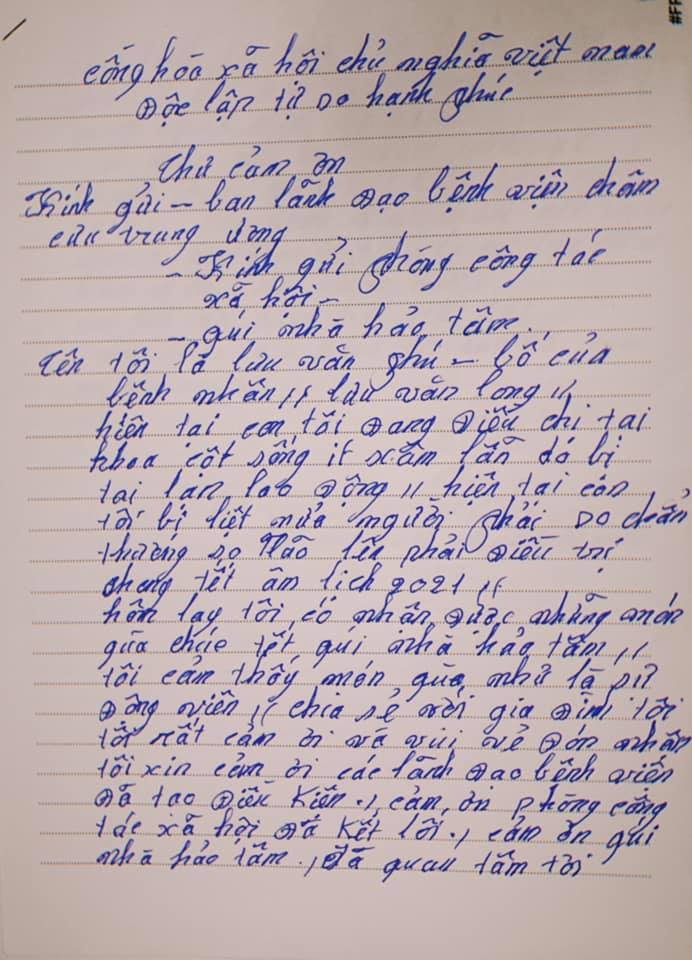 #FF
cống hóa xã hội chủ nghĩa việt nam
Độc lập tự do hạnh phúc
Thư cảm ơn
Kính gửi - ban lãnh đạo bệnh viện châm
cứu trung ương
- Kính gửi phòng công tác
xã hội -
- quí nhà hảo tâm.
Tên tôi là lưu văn phú - bố của
bệnh nhân,, lưu văn long,,
hiện tại con tôi đang điều chị tại
khoa cột sống ít xâm lấn do bị
tai lạn lao động,, hiện tại con
tôi bị liệt nửa người phải do chấn
thương sọ não lên phải điều trị
chong tết âm lịch 2021,,
hôm lay tôi có nhận được những món
qùa chúc tết quí nhà hảo tâm,,
tôi cảm thấy món qùa như là sự
động viên,, chia sẻ với gia đình tôi
tôi rất cảm ơi và vui vẻ đón nhận
tôi xin cảm ơi các lãnh đạo bệnh viên
đã tạo điều kiên., cảm ơn phòng công
tác xã hội đã kết lối., cảm ơn quí
nhà hảo tâm., đã quan tâm tới